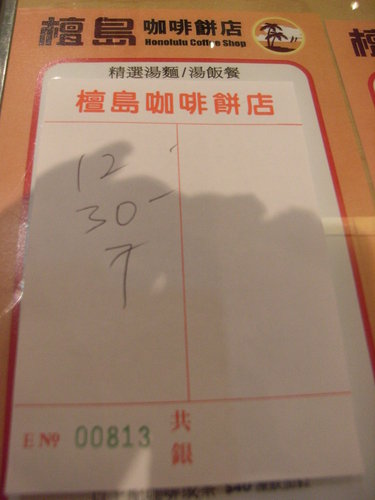 檀島咖啡餅店
Honolulu Coffee Shop
精選湯麵/湯飯餐
檀島咖啡餅店
12
30-
E Nº 00813
共
銀